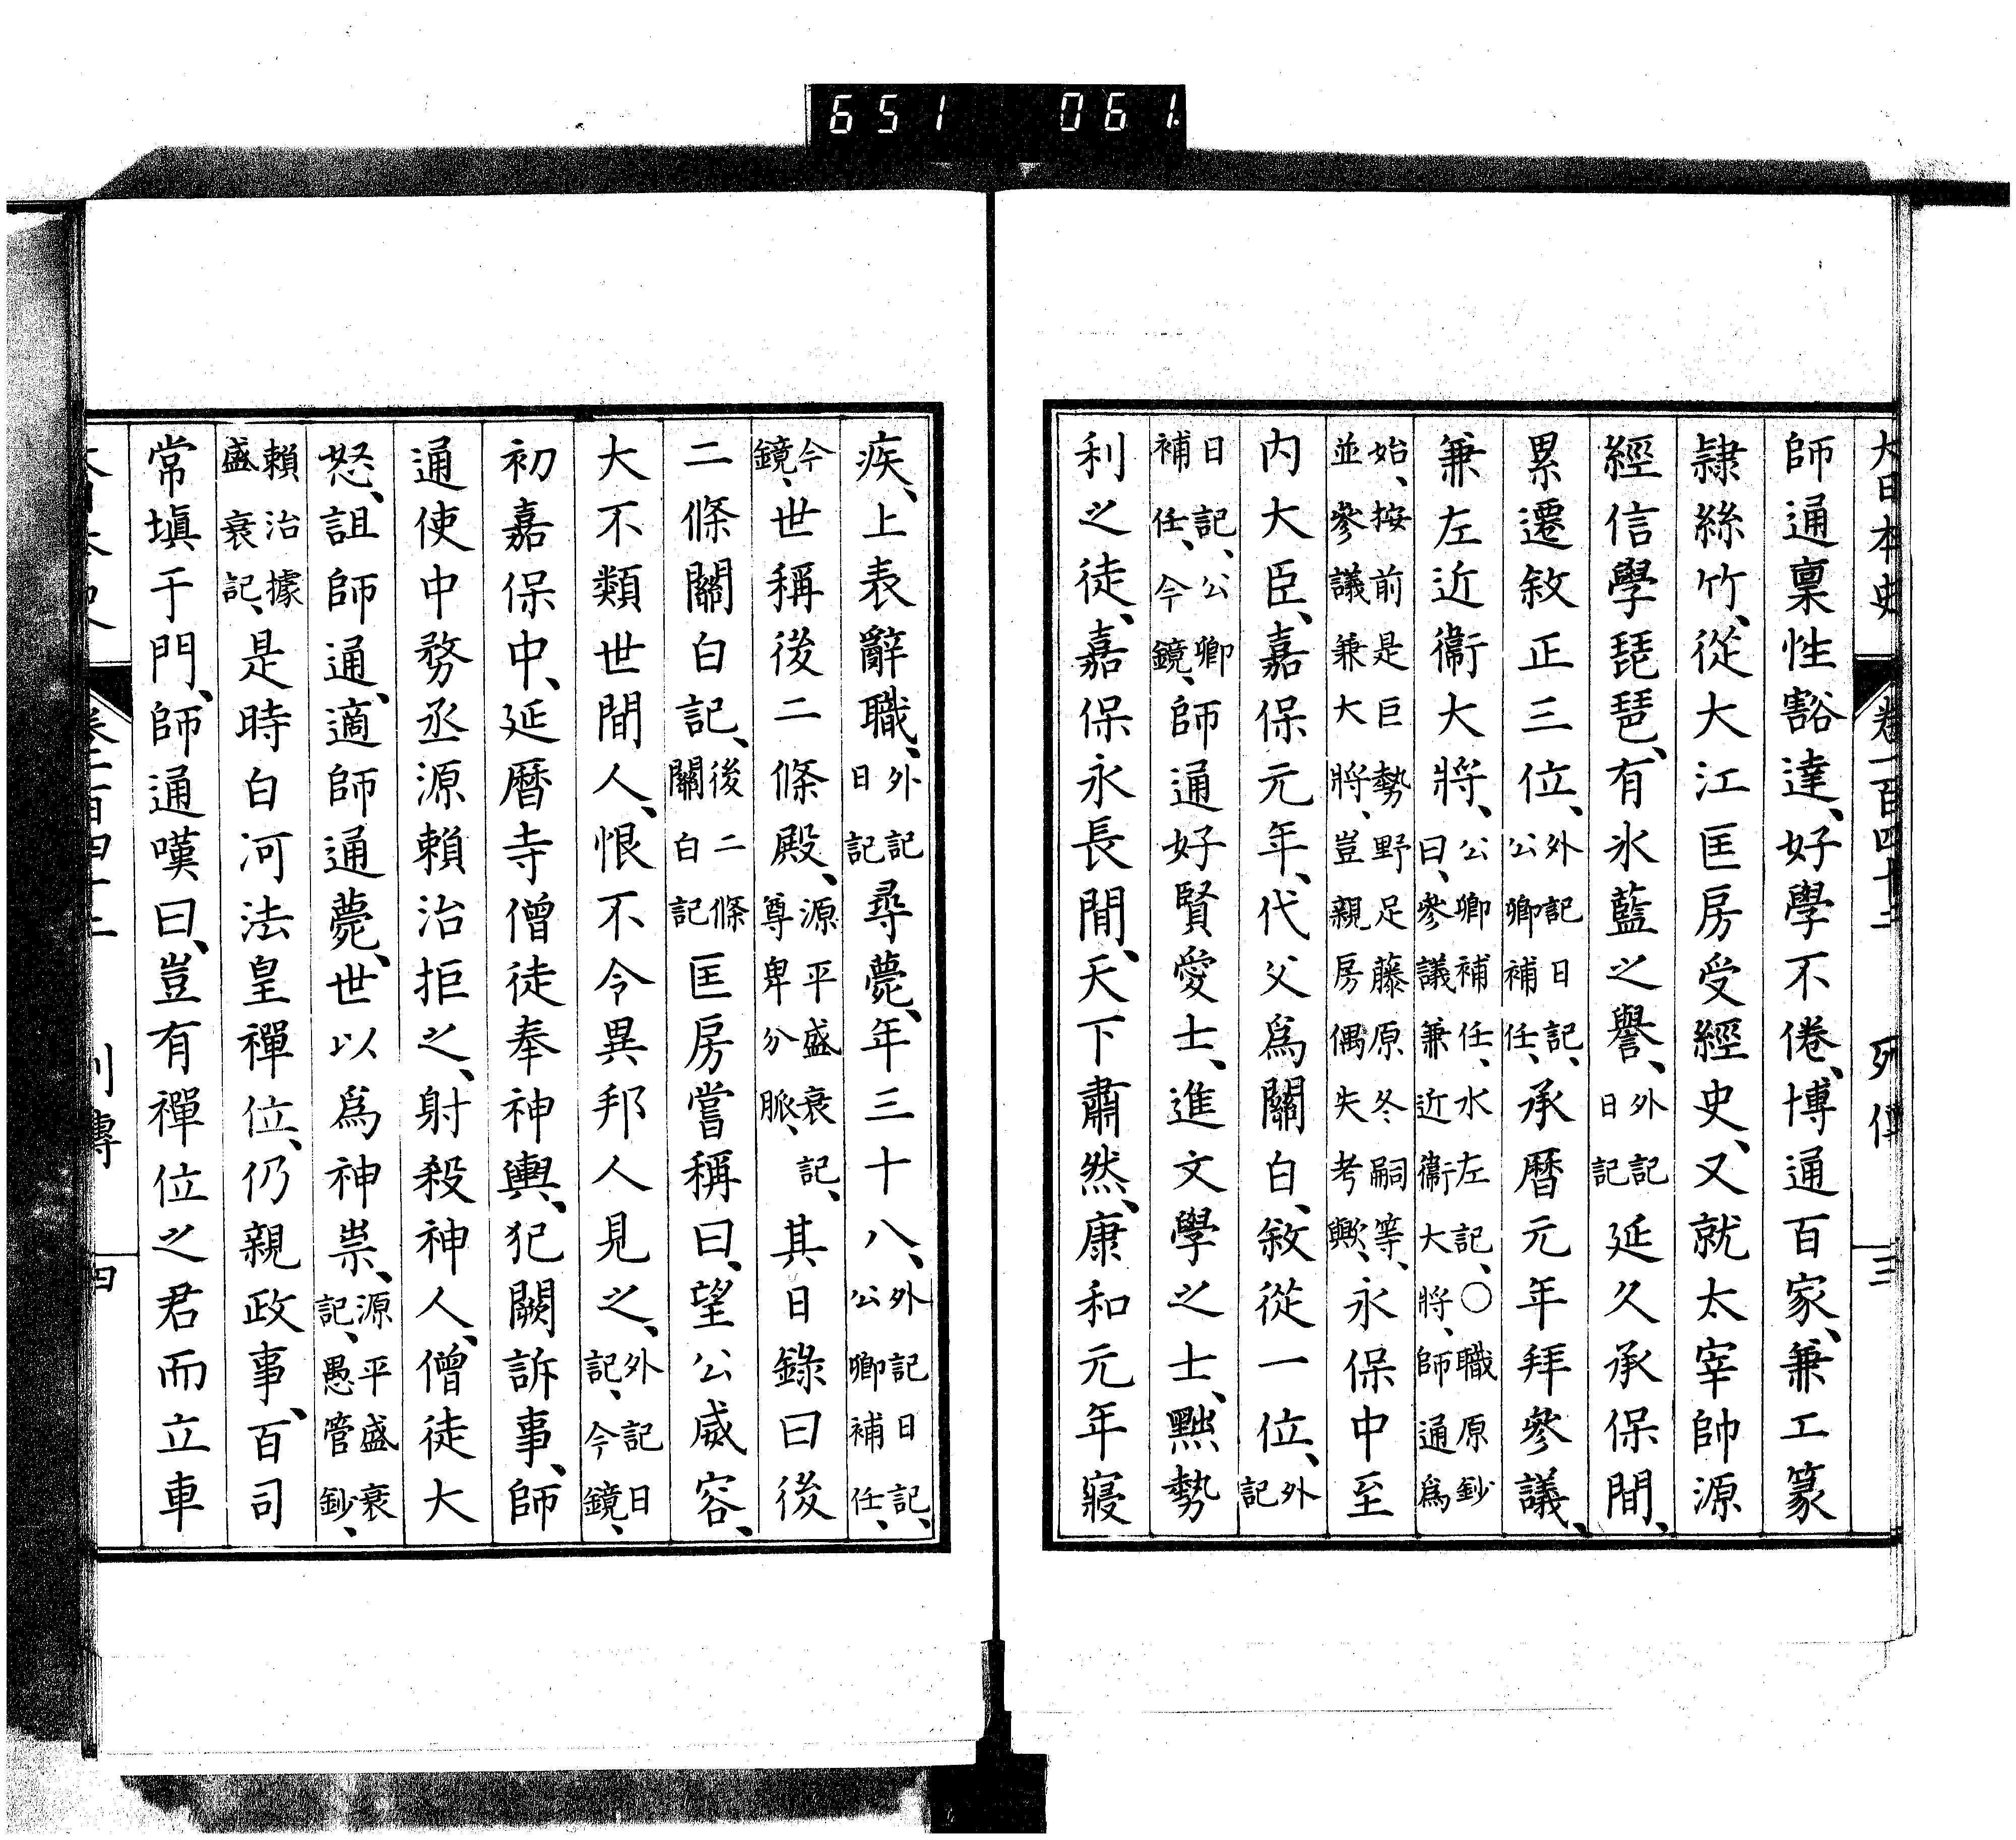 651 061
大日本史 卷一百四十二 列傳 三
師通稟性豁達、好學不倦、博通百家、兼工篆
隷絲竹、從大江匡房受經史、又就太宰帥源
經信學琵琶、有氷藍之譽、外記日記延久承保間、
累遷敘正三位、外記日記、公卿補任、承曆元年拜參議、
兼左近衞大將、公卿補任、水左記、○職原鈔曰、參議兼近衞大將、師通爲
始、按前是巨勢野足藤原冬嗣等、並參議兼大將、豈親房偶失考歟、永保中至
内大臣、嘉保元年、代父爲關白、敘從一位、外記
日記、公卿補任、今鏡、師通好賢愛士、進文學之士、黜勢
利之徒、嘉保永長間、天下肅然、康和元年寢
疾、上表辭職、外記日記尋薨、年三十八、外記日記、公卿補任、
今鏡、世稱後二條殿、源平盛衰記、尊卑分脈、其日錄曰後
二條關白記、後二條關白記匡房嘗稱曰、望公威容、
大不類世間人、恨不令異邦人見之、外記日記、今鏡、
初嘉保中、延曆寺僧徒奉神輿、犯闕訴事、師
通使中務丞源賴治拒之、射殺神人、僧徒大
怒、詛師通、適師通薨、世以爲神祟、源平盛衰記、愚管鈔、
賴治據盛衰記、是時白河法皇禪位、仍親政事、百司
常塡于門、師通嘆曰、豈有禪位之君而立車